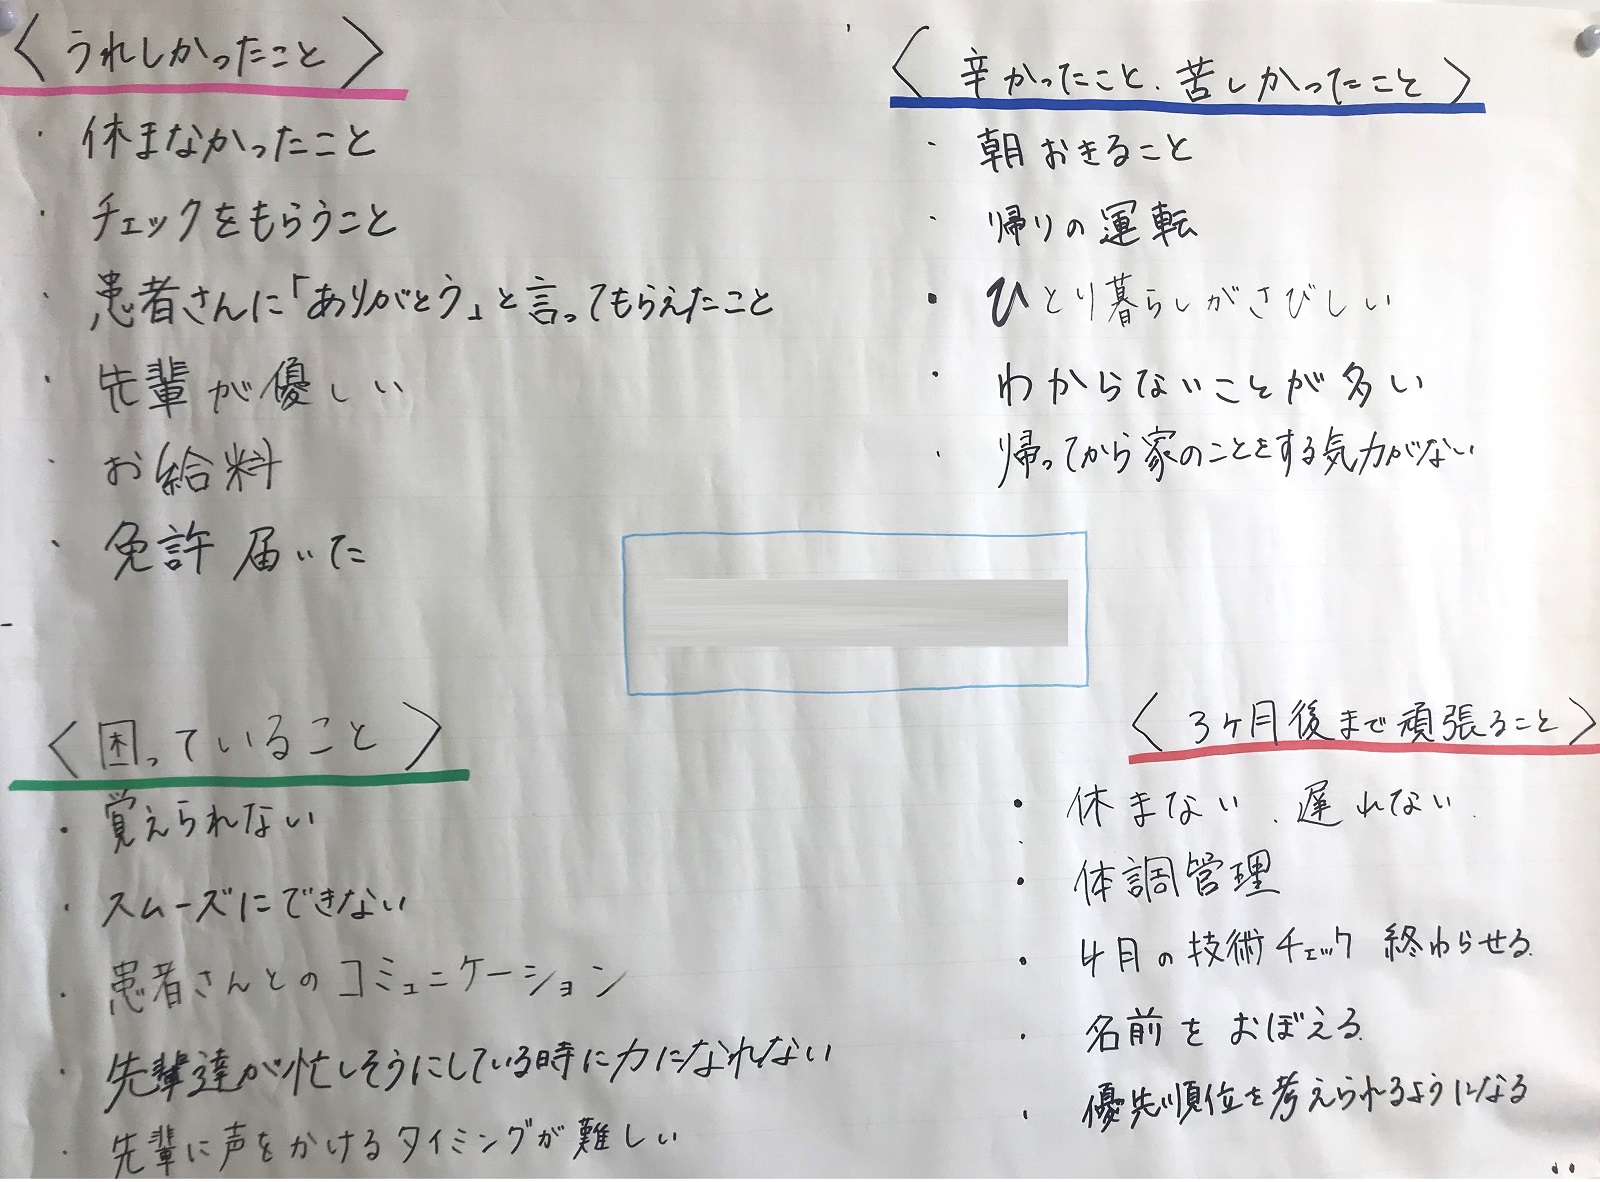 〈うれしかったこと〉
・休まなかったこと
・チェックをもらうこと
・患者さんに「ありがとう」と言ってもらえたこと
・先輩が優しい
・お給料
・免許届いた
〈辛かったこと、苦しかったこと〉
・朝おきること
・帰りの運転
・ひとり暮らしがさびしい
・わからないことが多い
・帰ってから家のことをする気力がない
〈困っていること〉
・覚えられない
・スムーズにできない
・患者さんとのコミュニケーション
・先輩達が忙しそうにしている時に力になれない
・先輩に声をかけるタイミングが難しい
〈3ヶ月後まで頑張ること〉
・休まない、遅れない
・体調管理
・4月の技術チェック 終わらせる
・名前をおぼえる
・優先順位を考えられるようになる